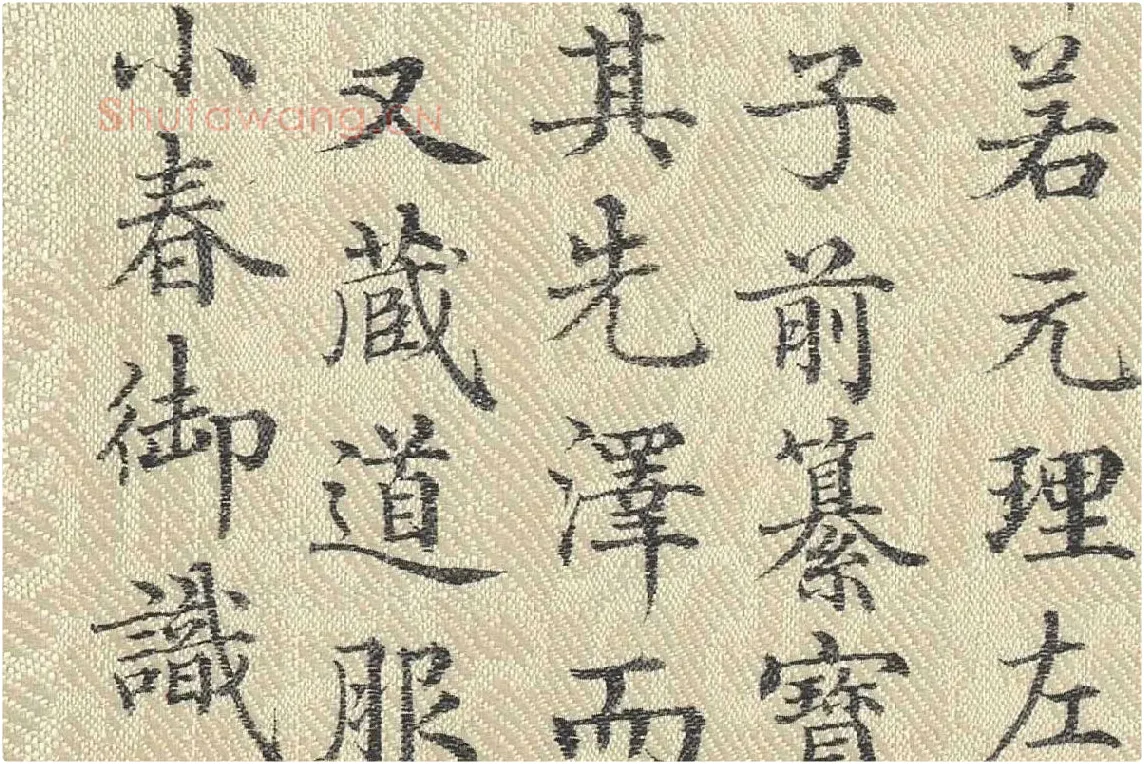 若元理左
子前纂寶
其先澤而
又蔵道服
小春御識
Shufawang.CN